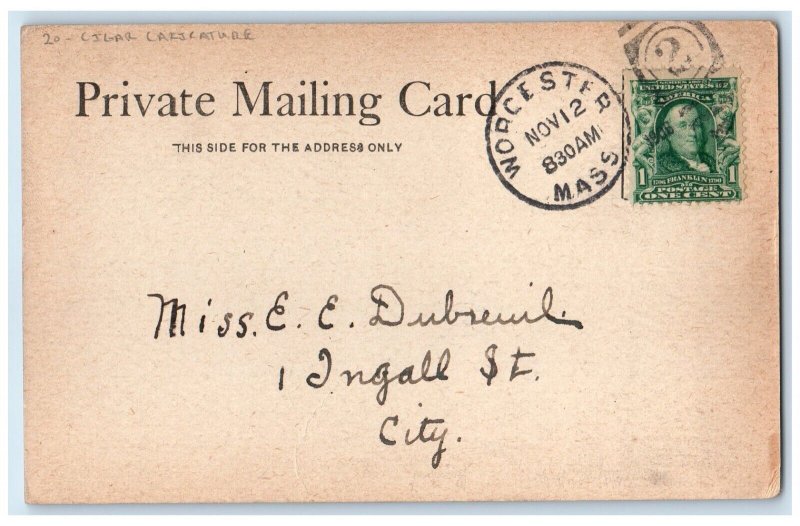 20 - CIGAR CARICATURE
Private Mailing Card
THIS SIDE FOR THE ADDRESS ONLY
WORCESTER
NOV 12
830AM
MASS
2
UNITED STATES OF
AMERICA
1 FRANKLIN 1
POSTAGE
ONE CENT
Miss. E. E. Dubreuil.
1 Ingall St.
City.